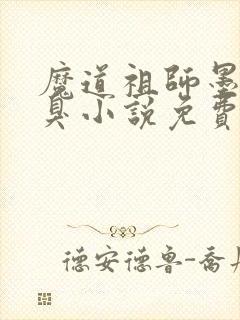 魔道祖師墨
臭小說免費
德安德魯-喬